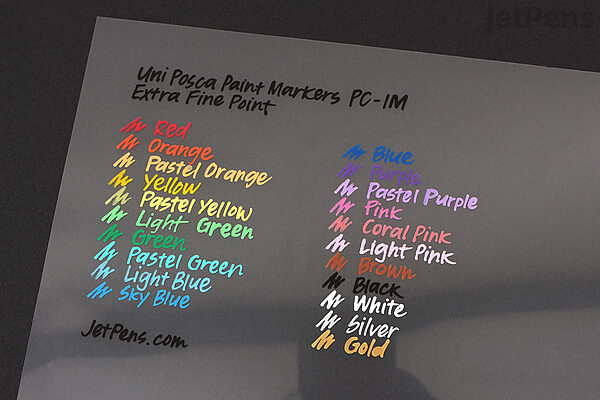 JetPens
Uni Posca Paint Markers PC-1M
Extra Fine Point
Red
Orange
Pastel Orange
Yellow
Pastel Yellow
Light Green
Green
Pastel Green
Light Blue
Sky Blue
JetPens.com
Blue
Purple
Pastel Purple
Pink
Coral Pink
Light Pink
Brown
Black
White
Silver
Gold